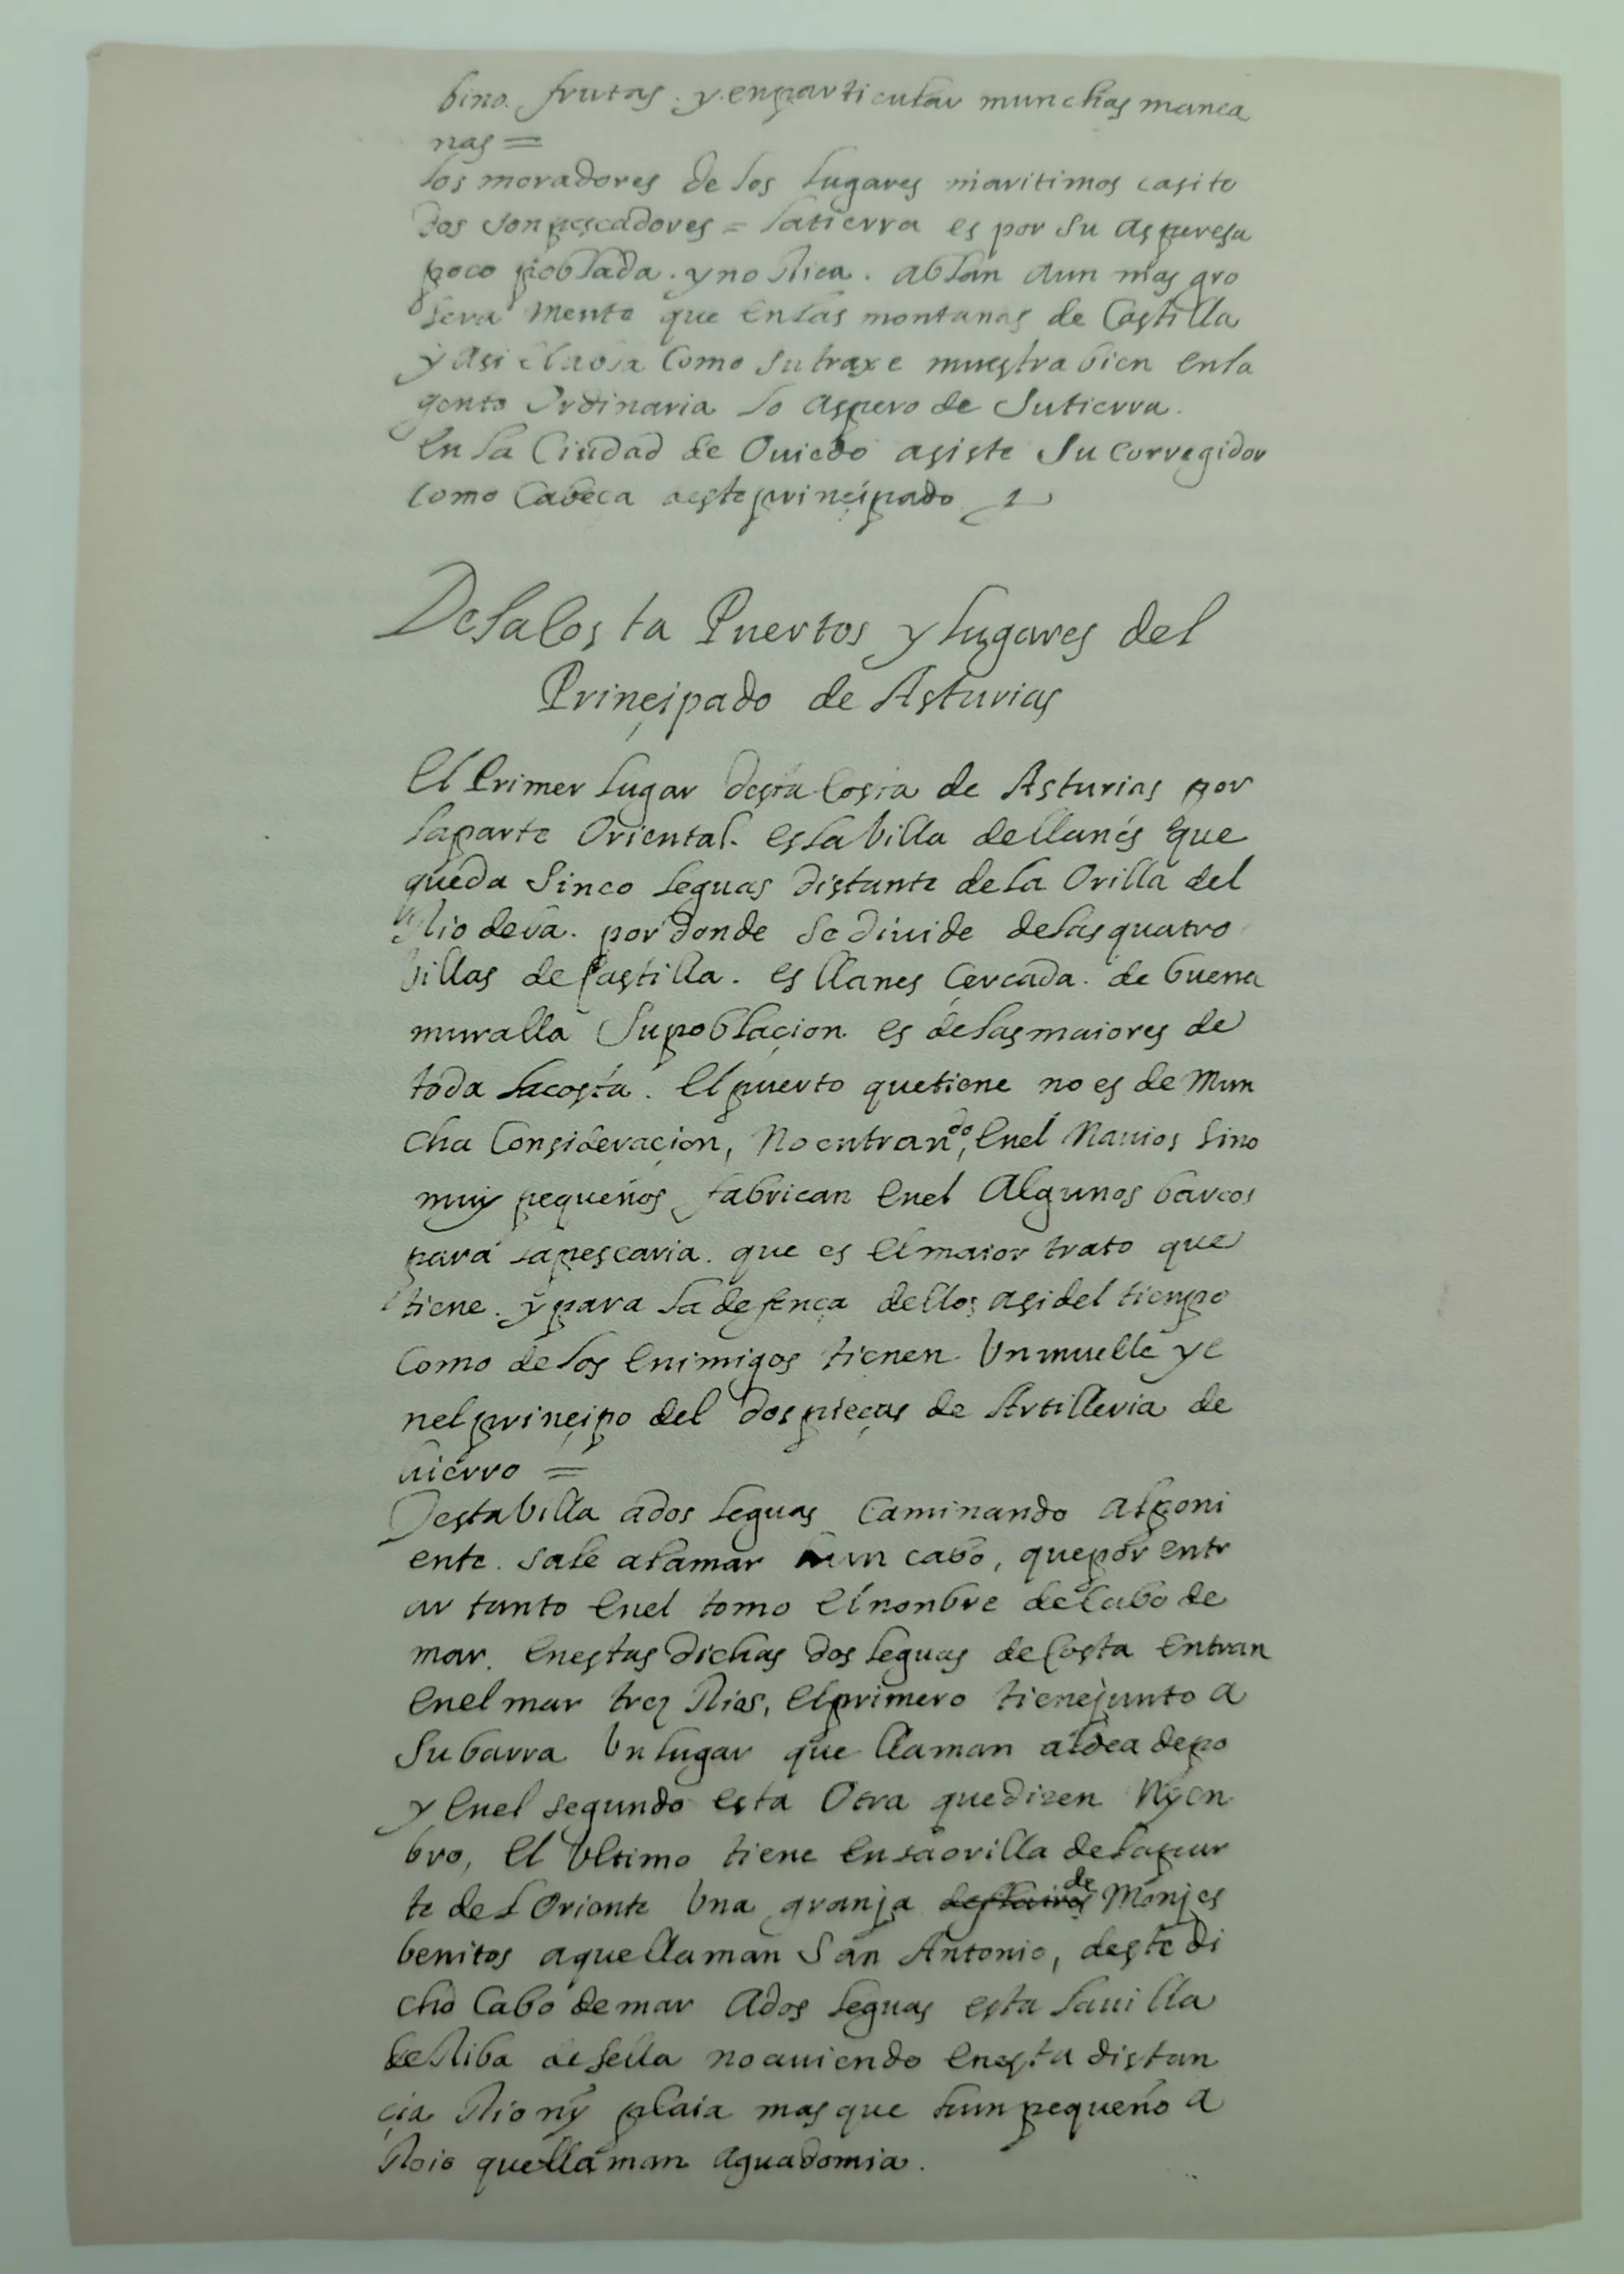 bino. frutas. y enparticular munchas manca
nas =
los moradores de los lugares maritimos casi to
dos son pescadores = la tierra es por su aspereza
poco poblada. y no Rica. ablan aun mas gro
sera mente que en las montanas de Castilla
y asi el abla como su traxe muestra bien en la
gente Ordinaria lo aspero de su tierra.
En la Ciudad de Ouiedo asiste su corregidor
como Cabeca deste principado
De la Costa Puertos y lugares del
Prinçipado de Asturias
El Primer lugar desta Costa de Asturias por
la parte Oriental. es la billa de llanes que
queda sinco leguas distante de la Orilla del
Rio deba. por donde se diuide de las quatro
billas de Castilla. es llanes çercada. de buena
muralla su poblaçion es de las maiores de
toda la costa. El puerto que tiene no es de mun
cha Consideraçion, No entrando, en el Nauios sino
muy pequeños, fabrican en el Algunos barcos
para la pescaria. que es el maior trato que
tiene. y para la defença dellos asi del tiempo
Como de los Enimigos tienen Un muelle y e
nel prinçipo del dos pieças de Artilleria de
hierro =
Desta billa a dos leguas Caminando al poni
ente. sale a la mar un cabo, que por entr
ar tanto en el tomo el nonbre de Cabo de
mar. En estas dichas dos leguas de Costa Entran
En el mar tres Rios, El primero tiene junto a
Su barra Un lugar que llaman aldea de po
y En el segundo esta Otra que dizen Nyen
bro, El Ultimo tiene En la orilla de la par
te del Oriente Una granja de Monjes
benitos a que llaman San Antonio, deste di
cho Cabo de mar A dos leguas esta la uilla
de Riba de sella no auiendo En esta distan
çia Rio ny plaia mas que hun pequeño a
Roio que llaman aguadomia.